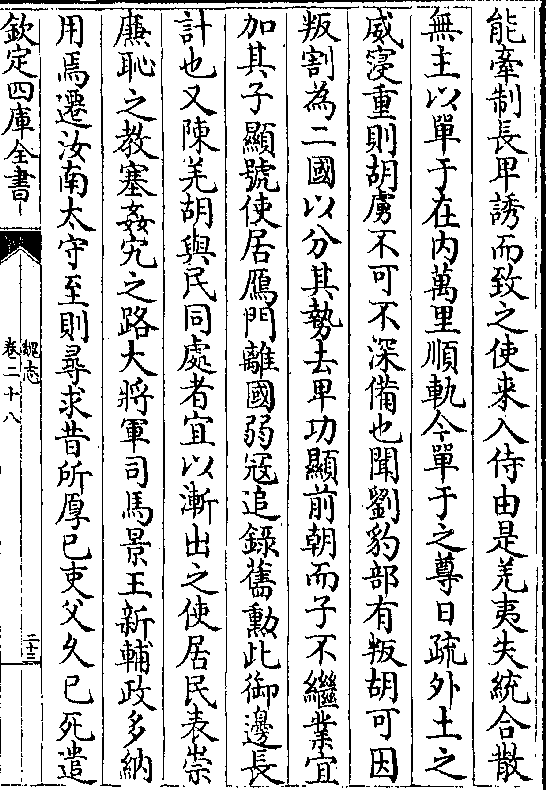 能牽制長卑誘而致之使来入侍由是羌夷失統合散
無主以單于在内萬里順軌今單于之尊日疏外土之
威寖重則胡虜不可不深備也聞劉豹部有叛胡可因
叛割為二國以分其勢去卑功顯前朝而子不繼業宜
加其子顯號使居鴈門離國弱冦追錄舊勳此御邊長
計也又陳羌胡與民同處者宜以漸出之使居民表崇
亷恥之教塞姦宄之路大將軍司馬景王新輔政多納
用焉遷汝南太守至則尋求昔所厚己吏父久已死遣
欽定四庫全書
魏志
卷二十八
二十三